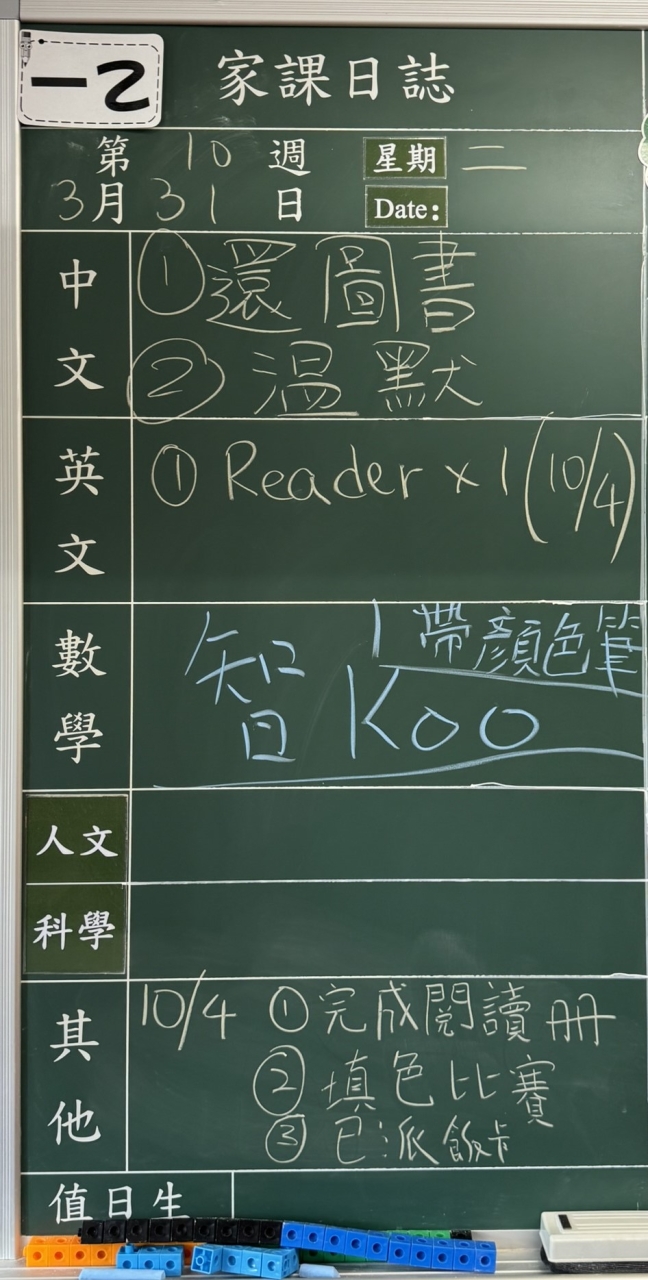 一乙
家課日誌
第 10 週 星期 二
3月 31 日 Date:
中文
①還圖書
②溫默
英文
① Reader × 1 (10/4)
數學
1 帶顏色筆
智 Koo
人文
科學
其他
10/4 ①完成閱讀冊
②填色比賽
③已派飯卡
值日生